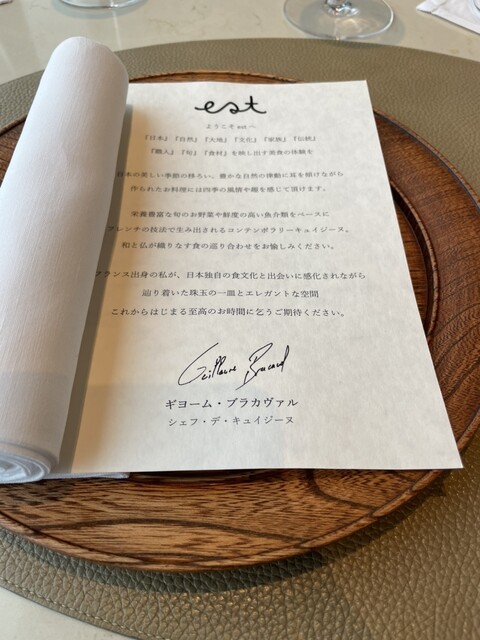 est
ようこそ est へ
『日本』『自然』『大地』『文化』『家族』『伝統』
『職人』『旬』『食材』を映し出す美食の体験を
日本の美しい季節の移ろい、豊かな自然の律動に耳を傾けながら
作られたお料理には四季の風情や趣を感じて頂けます。
栄養豊富な旬のお野菜や鮮度の高い魚介類をベースに
フレンチの技法で生み出されるコンテンポラリーキュイジーヌ。
和と仏が織りなす食の巡り合わせをお愉しみください。
フランス出身の私が、日本独自の食文化と出会いに感化されながら
辿り着いた珠玉の一皿とエレガントな空間
これからはじまる至高のお時間に乞うご期待ください。
Guillaume Bracaval
ギヨーム・ブラカヴァル
シェフ・デ・キュイジーヌ